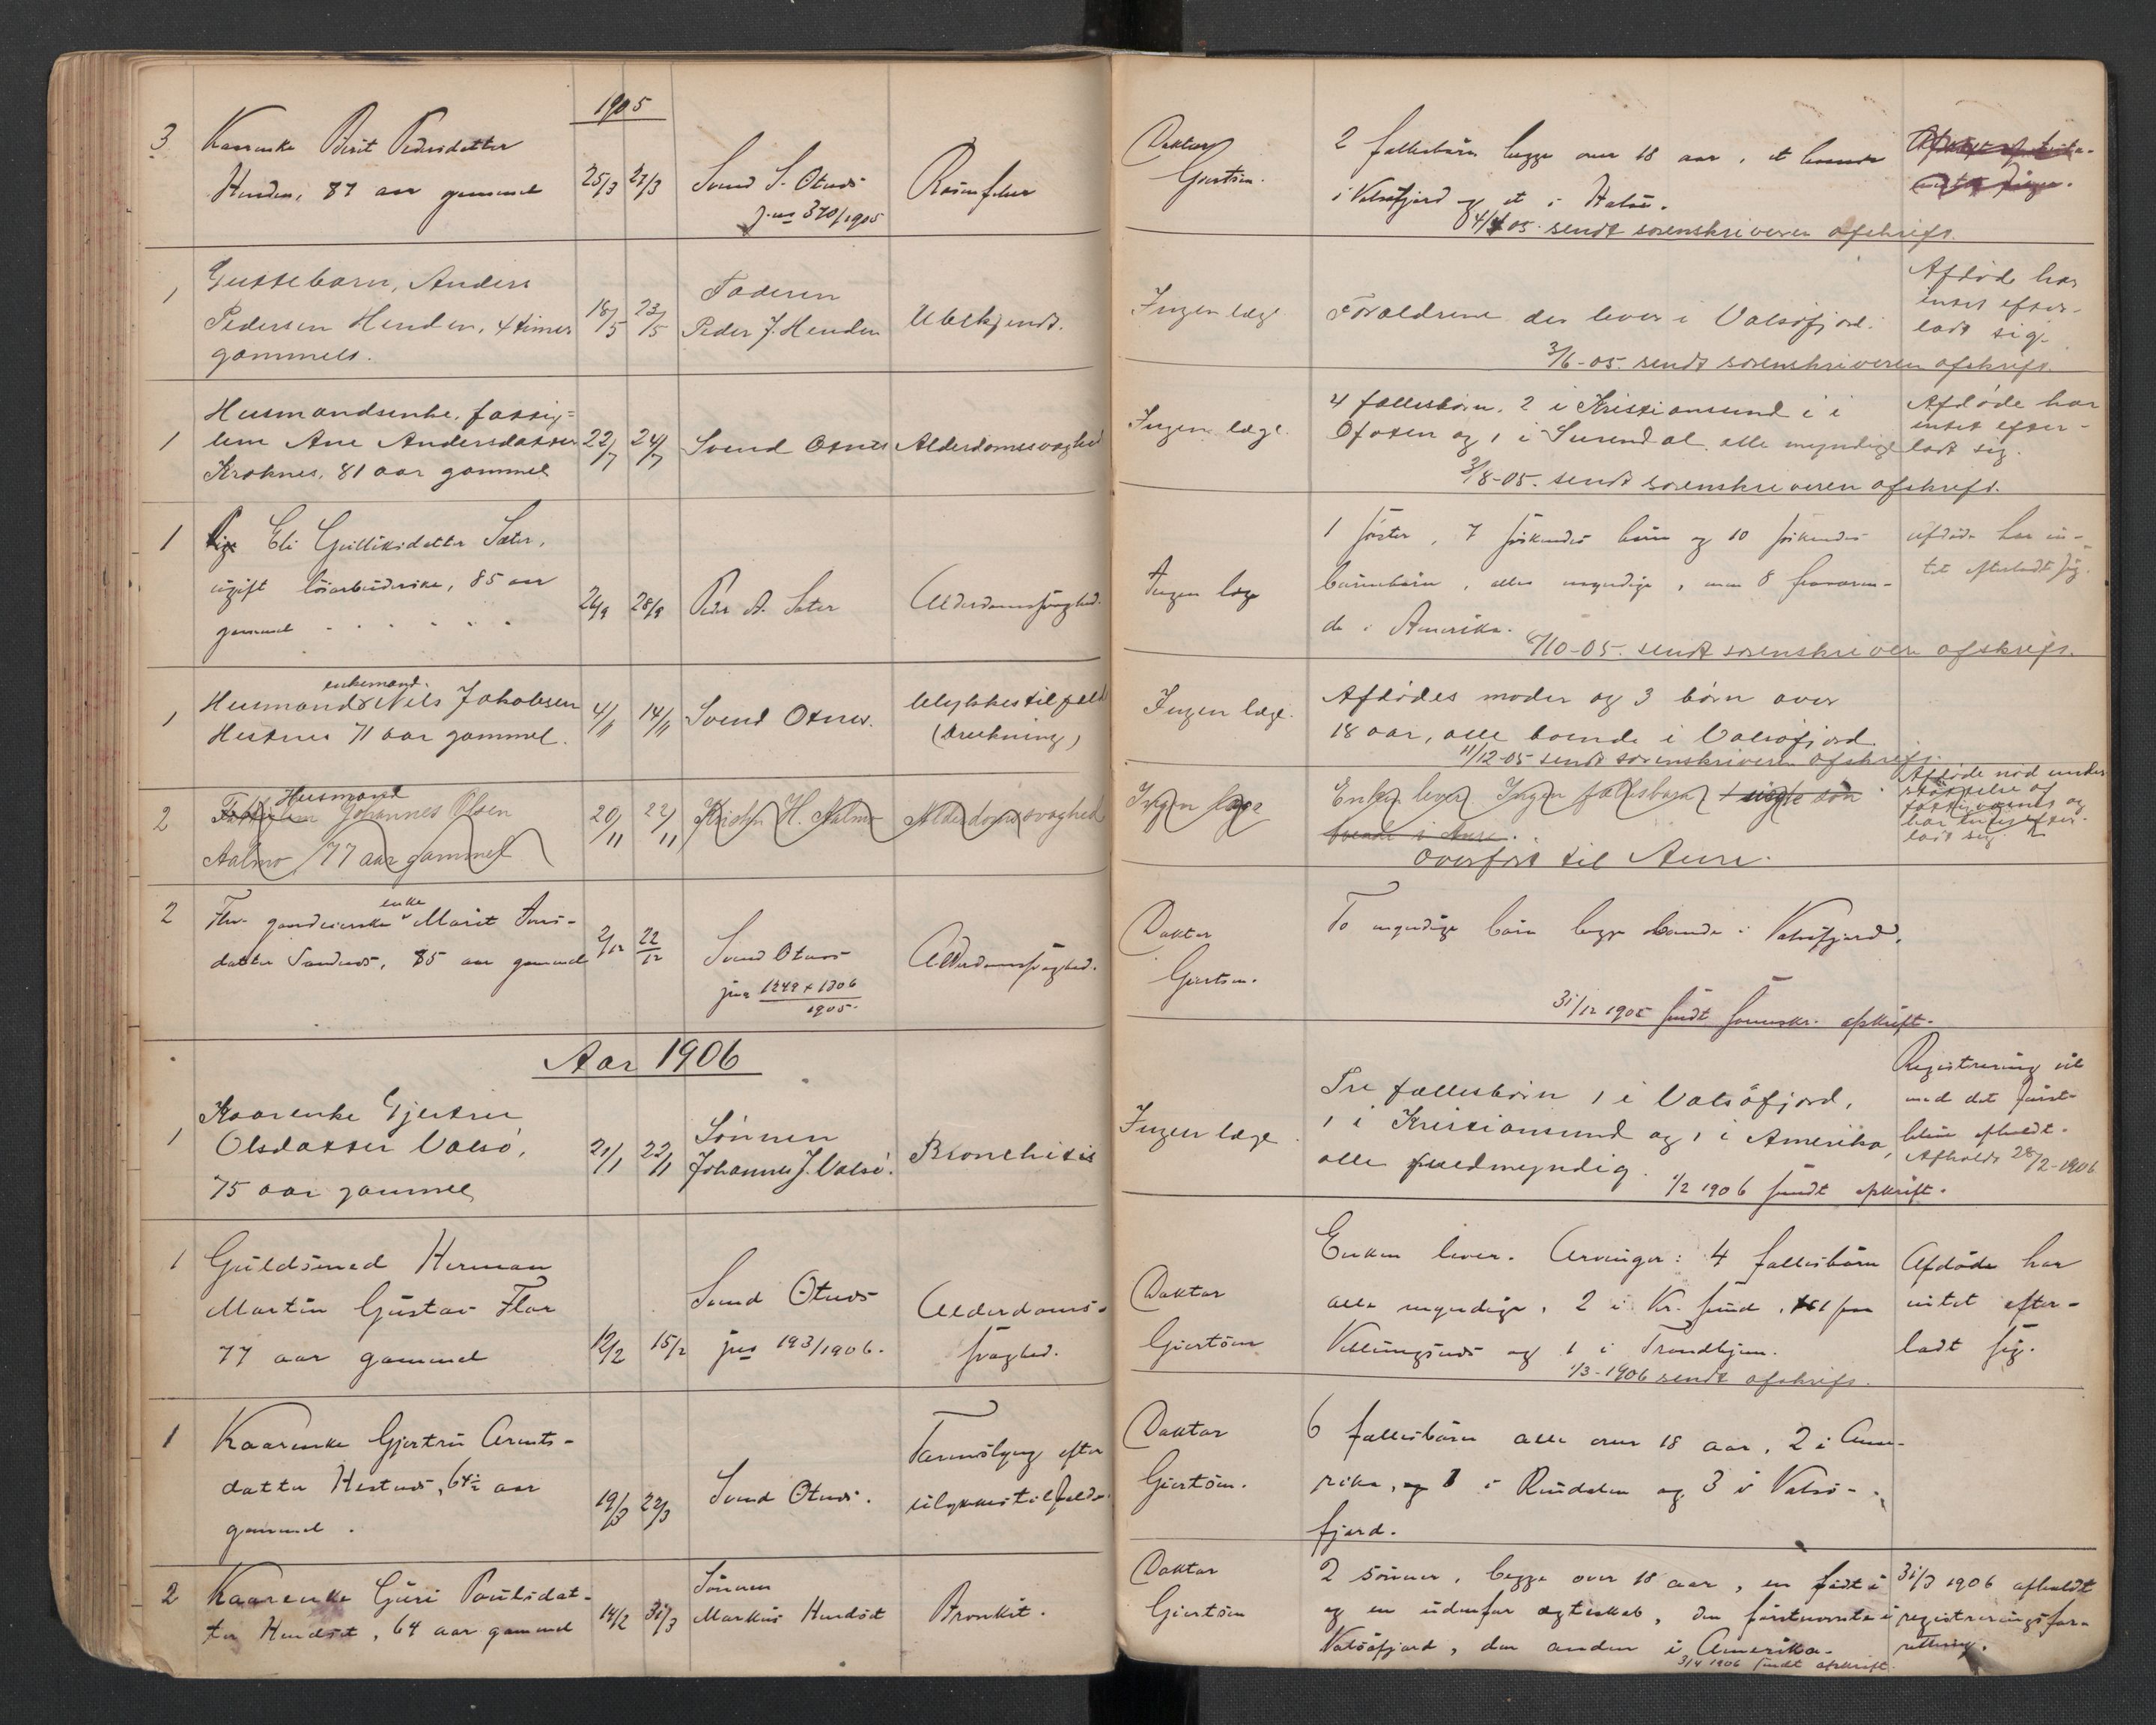 1905
3 Kaarenke Berit Pedersdatter
Henden, 87 aar gammel
25/3 27/3
Svend S. Otnes
jur 370/1905
Rosenfeber
Doktor
Giertsen.
2 fællesbørn begge over 18 aar, et boende
i Valsøfjord og et i Halse.
4/4 05 sendt sorenskriveren afskrift.
1 Guttebarn, Anders
Pedersen Henden, 4 timer
gammelt.
18/5 23/5
Faderen
Peder J. Henden
Ubekjendt.
Ingen læge
Forældrene der lever i Valsøfjord.
3/6-05. sendt sorenskriveren afskrift.
Afdøde har
intet efter-
ladt sig.
1 Husmandsenke, fattig-
lem Ane Andersdatter
Kroknes, 81 aar gammel
22/7 24/7
Svend Otnes
Alderdomssvaghed
Ingen læge.
4 fællesbørn. 2 i Kristiansund i i
Ofoten og 1 i Surendal alle myndige
3/8-05. sendt sorenskriveren afskrift.
Afdøde har
intet efter-
ladt sig.
1 Pige Eli Gulliksdatter Sæter,
ugift løsarbeiderske, 85 aar
gammel
26/9 28/9
Peder A. Sæter
Alderdomssvaghed.
Ingen læge
1 søster, 7 søskendes børn og 10 søskendes
børnebørn, alle myndige, men 8 fraværen-
de i Amerika.
/10-05. sendt sorenskriveren afskrift.
afdøde har in-
tet efterladt sig.
enkemand.
1 Husmand Nels Jakobsen
Hestnes 71 aar gammel.
4/11 14/11
Svend Otnes.
Ulykkestilfeld
(drukning)
Ingen læge.
Afdødes moder og 3 børn over
18 aar, alle boende i Valsøfjord.
11/12-05 sendt sorenskriveren afskrift.
Husmand
2 Fattiglem Johannes Olsen
Aalmo 77 aar gammel
20/11 22/11
Kristen H. Aalmo
Alderdomssvaghed
Ingen læge
Enken lever. Ingen fællesbarn 1 uægte søn
boende i Aure.
overført til Aure.
Afdøde nød under-
støttelse af
fattigvæsnet og
har intet efter-
ladt sig.
enke
2 Fhv. gaardeierske Marit Jons-
datter Sandnes, 85 aar gammel
2/12 22/12
Svend Otnes
jur 1249 + 1306
1905.
Alderdomssvaghed.
Doktor
Giertsen.
To myndige børn begge boende i Valsøfjord.
31/12 1905 sendt sorenskr. afskrift.
Aar 1906
1 Kaarenke Gjertru
Olsdatter Valsø,
75 aar gammel
21/1 22/1
Sønnen
Johannes J. Valsø.
Bronchitis
Ingen læge.
Tre fællesbørn 1 i Valsøfjord,
1 i Kristiansund og 1 i Amerika,
alle fuldmyndig.
1/2 1906 sendt afskrift.
Registrering vil
med det første
blive afholdt.
Afholdt 28/2-1906
1 Guldsmed Herman
Martin Gustav Flor
77 aar gammel
12/2 15/2
Svend Otnes
jur 193/1906.
Alderdoms-
svaghed.
Doktor
Giertsen
Enken lever. Arvinger: 4 fællesbørn
alle myndige, 2 i Kr. sund, 1 paa
Vettingsnes og 1 i Trondhjem.
1/3-1906 sendt afskrift.
Afdøde har
intet efter-
ladt sig.
1 Kaarenke Gjertru Arnts-
datter Hestnes, 64½ aar
gammel.
19/3 22/3
Svend Otnes.
Tarmslyng efter
ulykkestilfelde.
Doktor
Giertsen.
6 fællesbørn alle over 18 aar, 2 i Ame-
rika, 1 i Rindalen og 3 i Valsø-
fjord.
2 Kaarenke Guri Poulsdat-
ter Hendset, 64 aar gammel
14/2 31/3
Sønnen
Markus Hendset
Bronkit.
Doktor
Giertsen
2 sønner, begge over 18 aar, en født i
og en udenfor ægteskab, den førstnevnte i
Valsøfjord, den anden i Amerika.
3/4 1906 sendt afskrift.
31/3 1906 afholdt
registreringsfor-
retning.